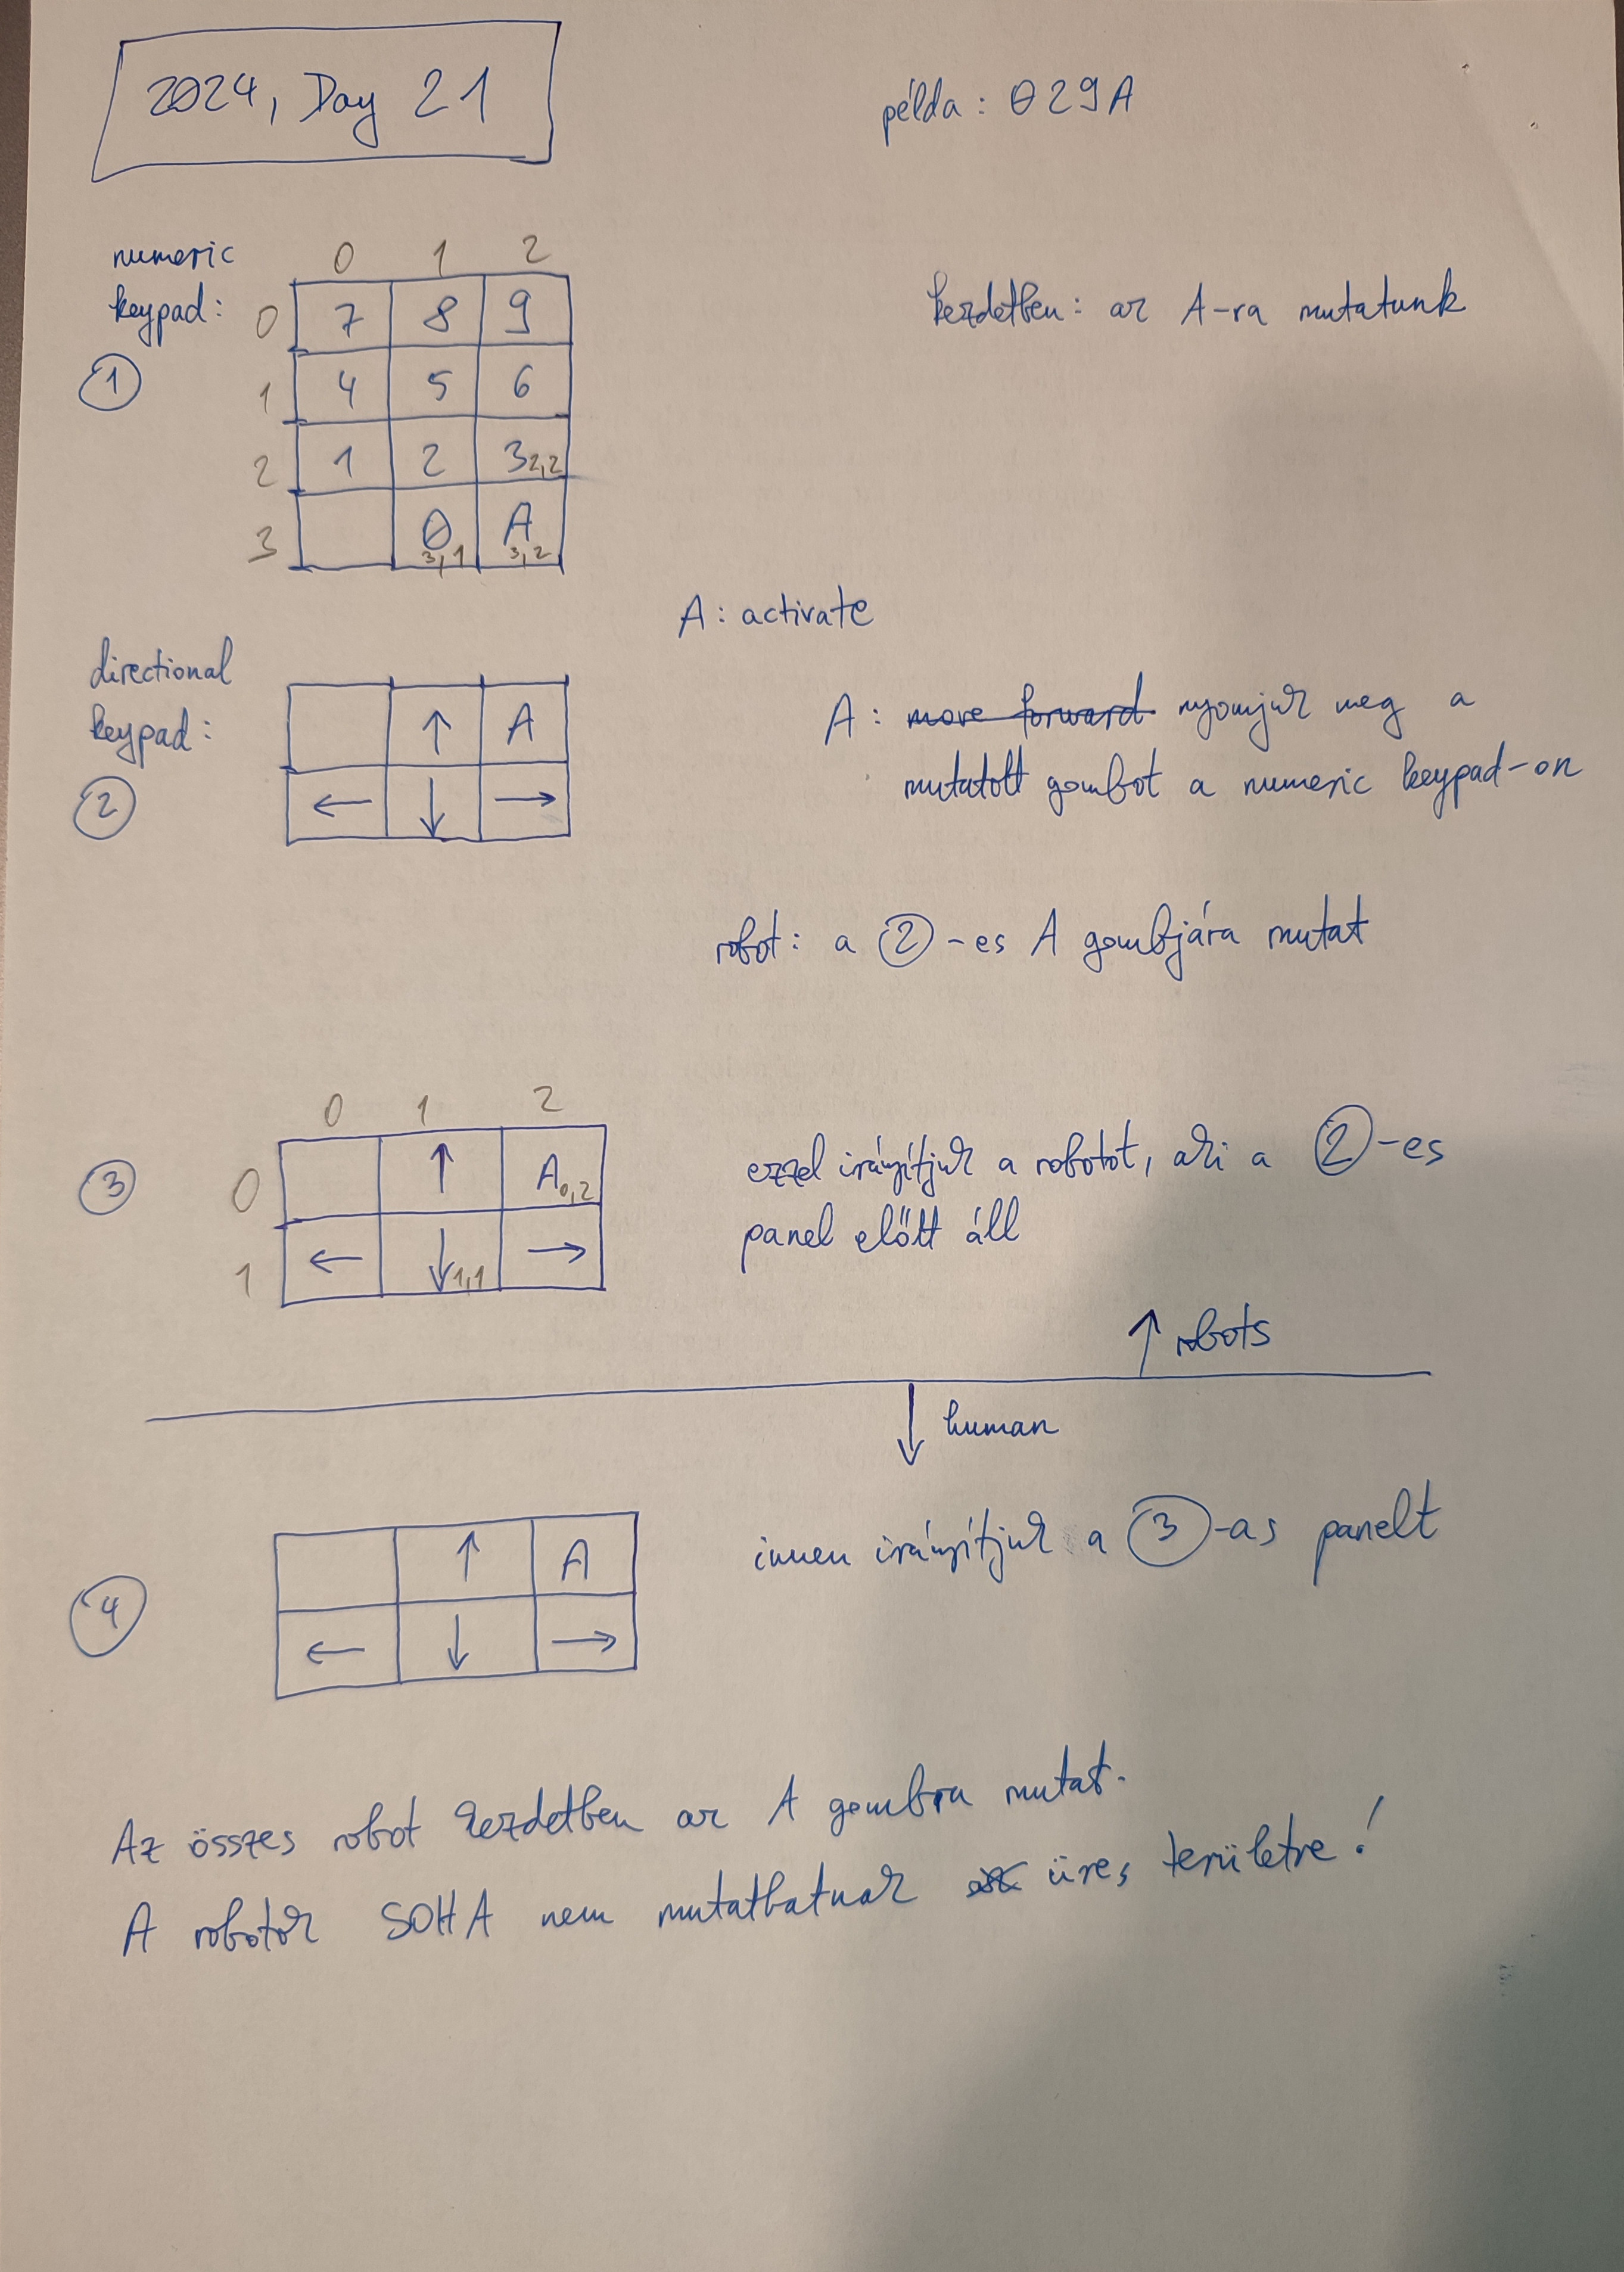 2024, Day 21
példa: 029A
numeric
keypad:
1
0 1 2
0 7 8 9
1 4 5 6
2 1 2 3 2,2
3 0 3,1 A 3,2
kezdetben: az A-ra mutatunk
A: activate
directional
keypad:
2
↑ A
← ↓ →
A: move forward nyomjuk meg a
mutatott gombot a numeric keypad-on
robot: a 2-es A gombjára mutat
3
0 1 2
0 ↑ A 0,2
1 ← ↓ 1,1 →
ezzel irányítjuk a robotot, aki a 2-es
panel előtt áll
↑ robots
↓ human
4
↑ A
← ↓ →
innen irányítjuk a 3-as panelt
Az összes robot kezdetben az A gombra mutat.
A robotok SOHA nem mutathatnak üres területre!